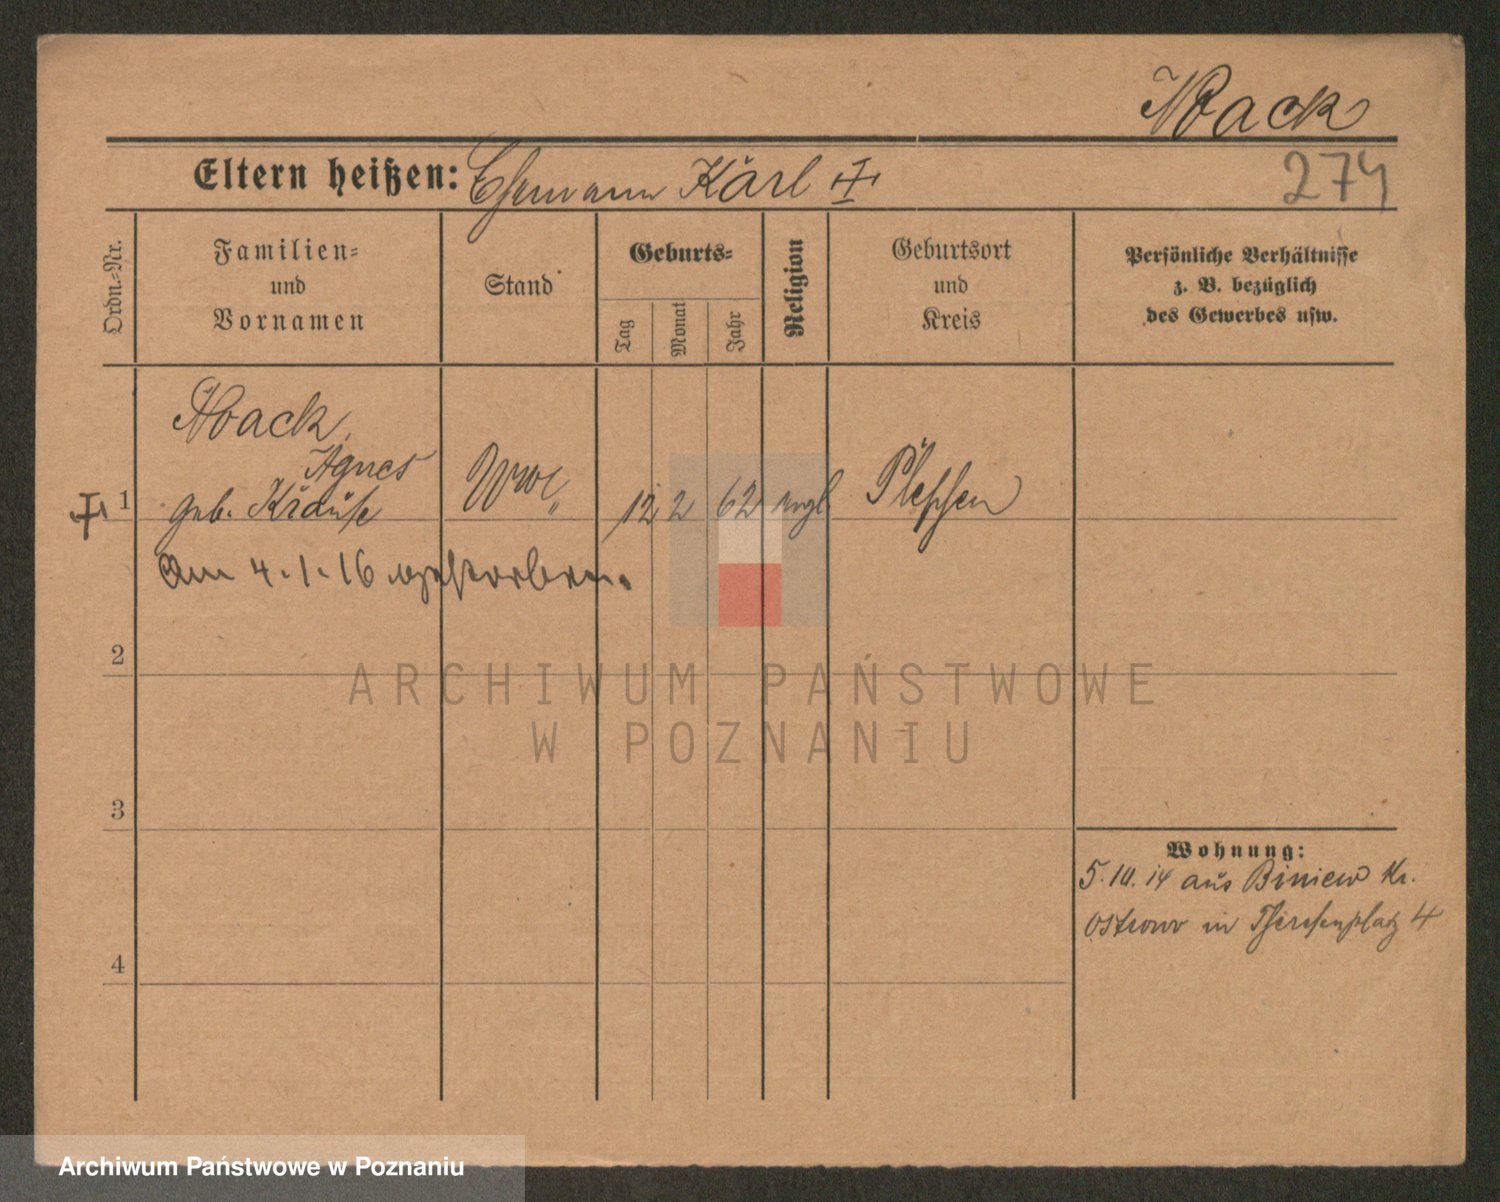 Noack
Eltern heißen: Ehemann Karl
274
Ordn.-Nr.
Familien-
und
Vornamen
Stand
Geburts-
Tag
Monat
Jahr
Religion
Geburtsort
und
Kreis
Persönliche Verhältnisse
z. B. bezüglich
des Gewerbes usw.
Noack,
Agnes
1 geb. Krause Wwe 12 2 62 evgl. Pleschen
Am 4.1.16 verstorben.
2
ARCHIWUM PAŃSTWOWE
W POZNANIU
3
Wohnung:
5.10.14 aus Biniew Kr.
Ostrowo in Theresenplatz 4
4
Archiwum Państwowe w Poznaniu